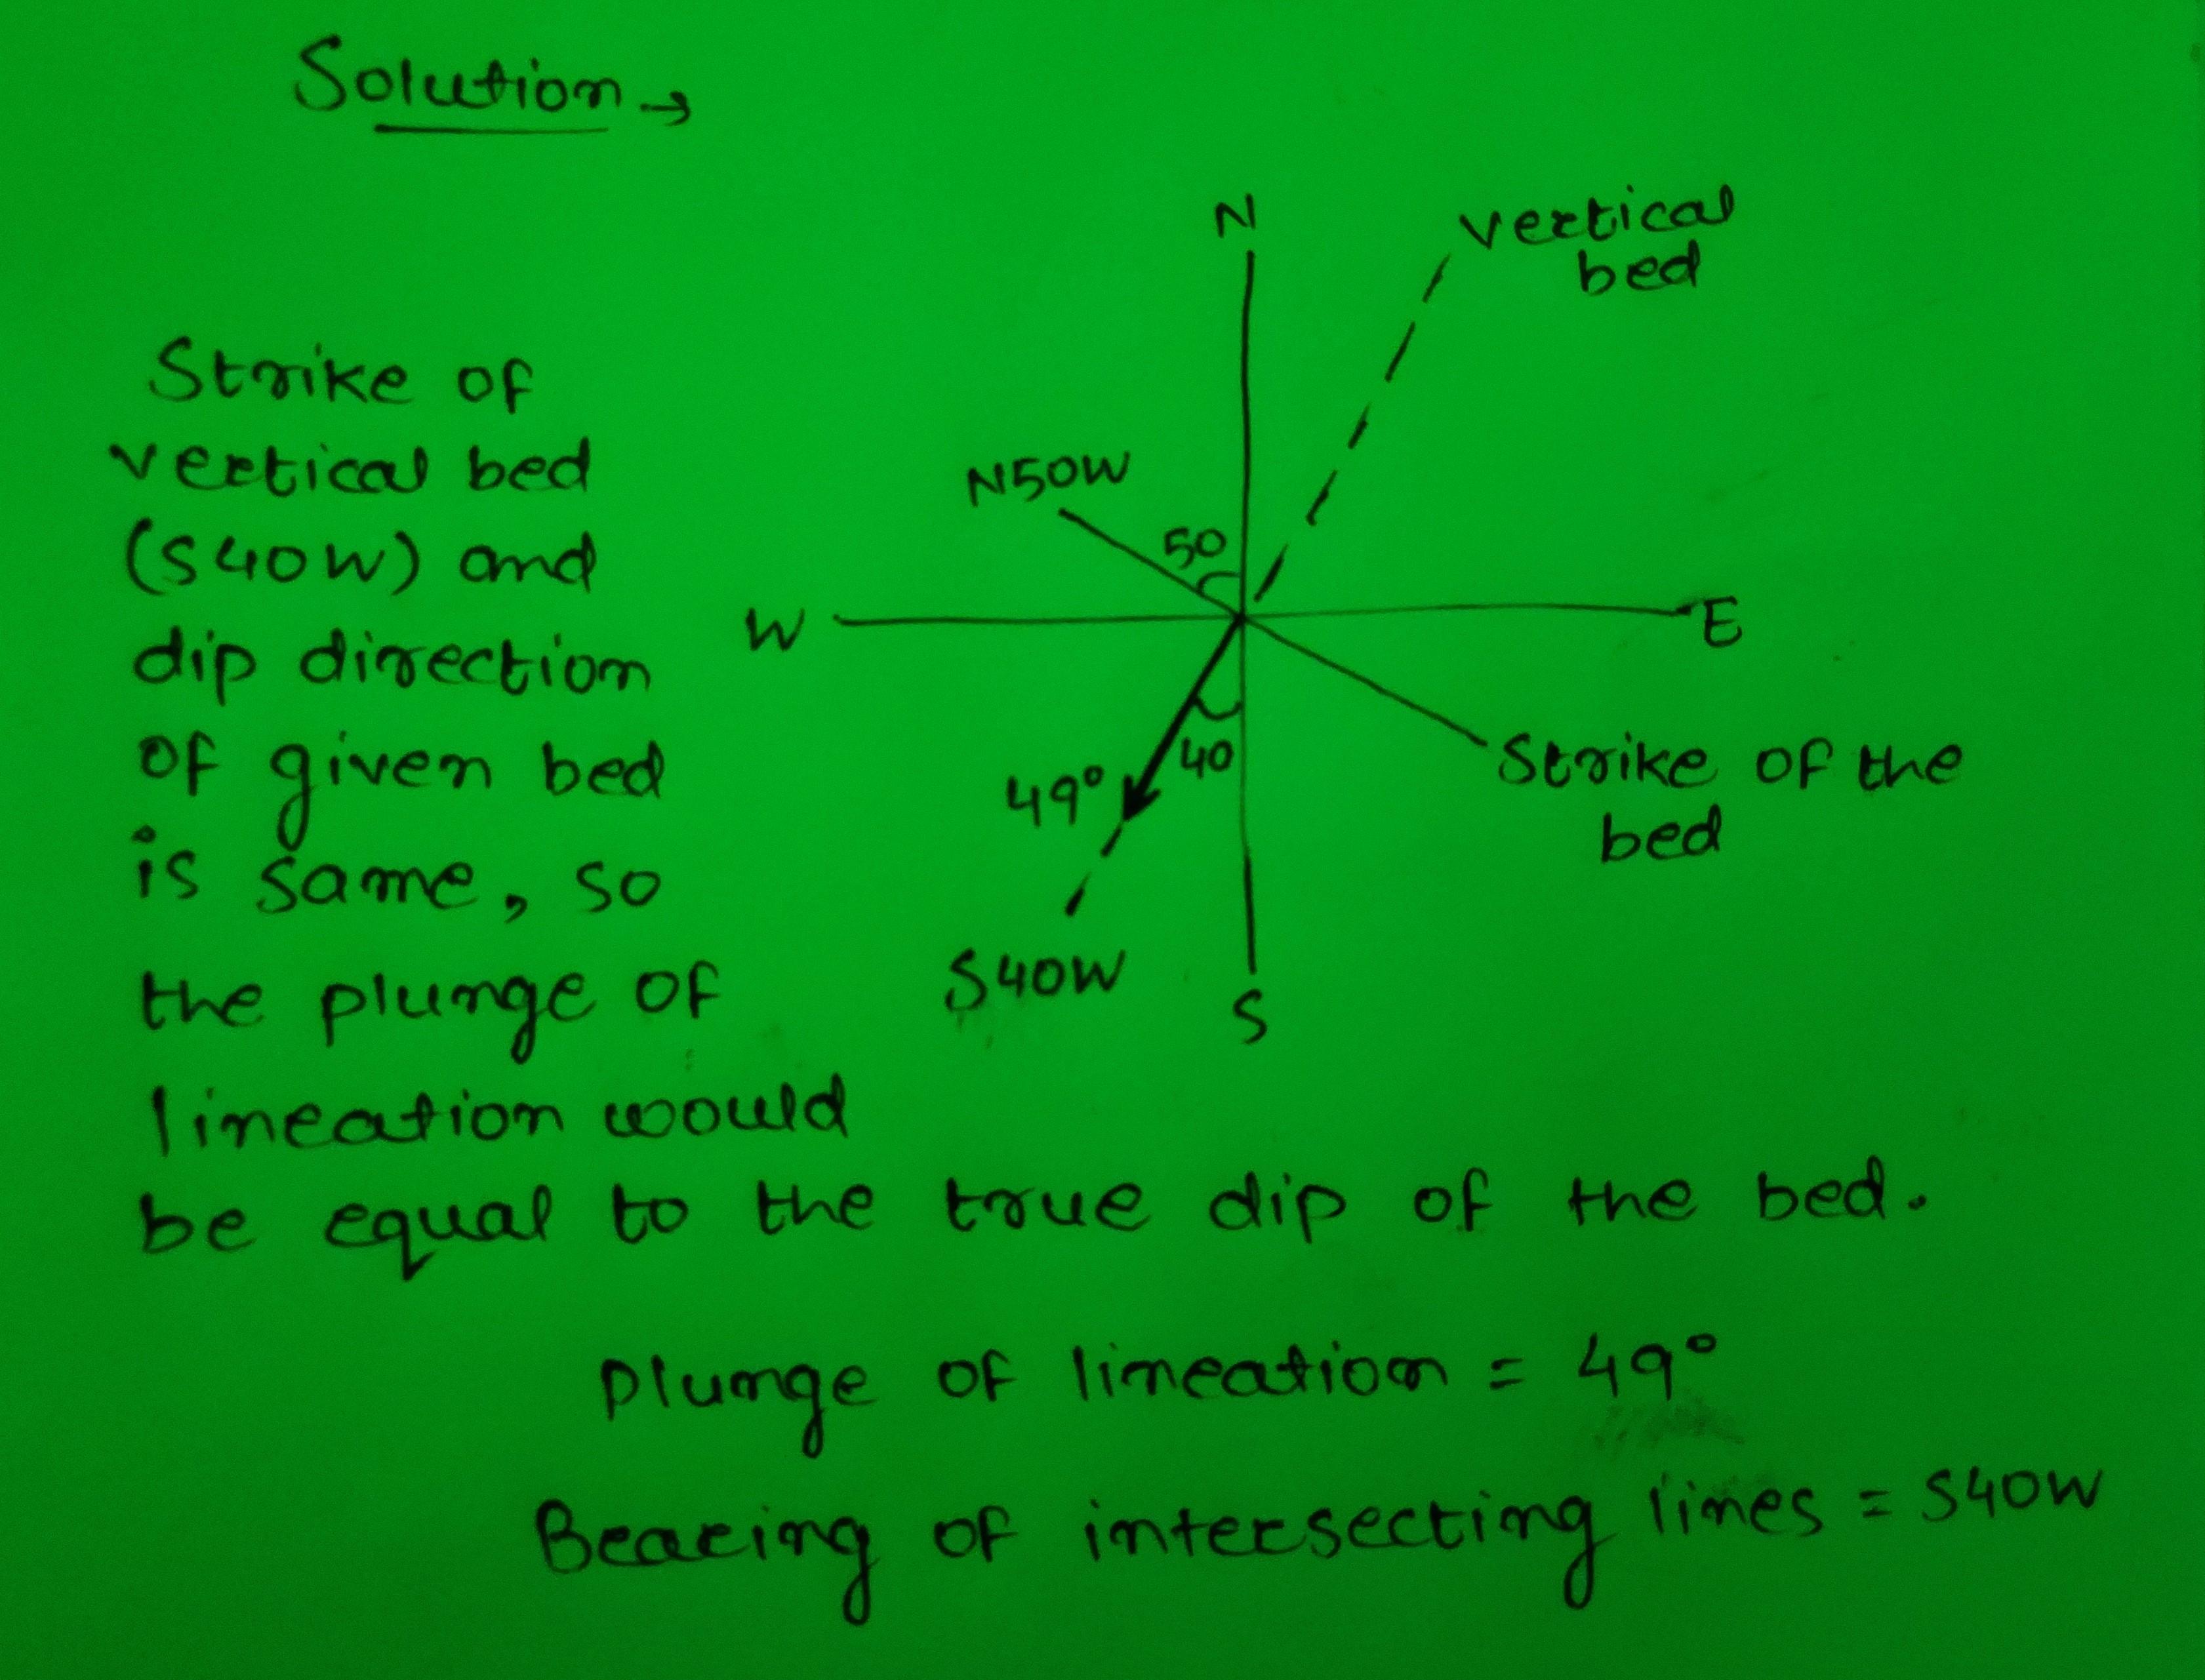 Solution →
N
vertical
bed
Strike of
vertical bed
(S40W) and
dip direction
of given bed
is same, so
the plunge of
lineation would
be equal to the true dip of the bed.
N50W
50
W
E
40
49°
Strike of the
bed
S40W
S
Plunge of lineation = 49°
Bearing of intersecting lines = S40W